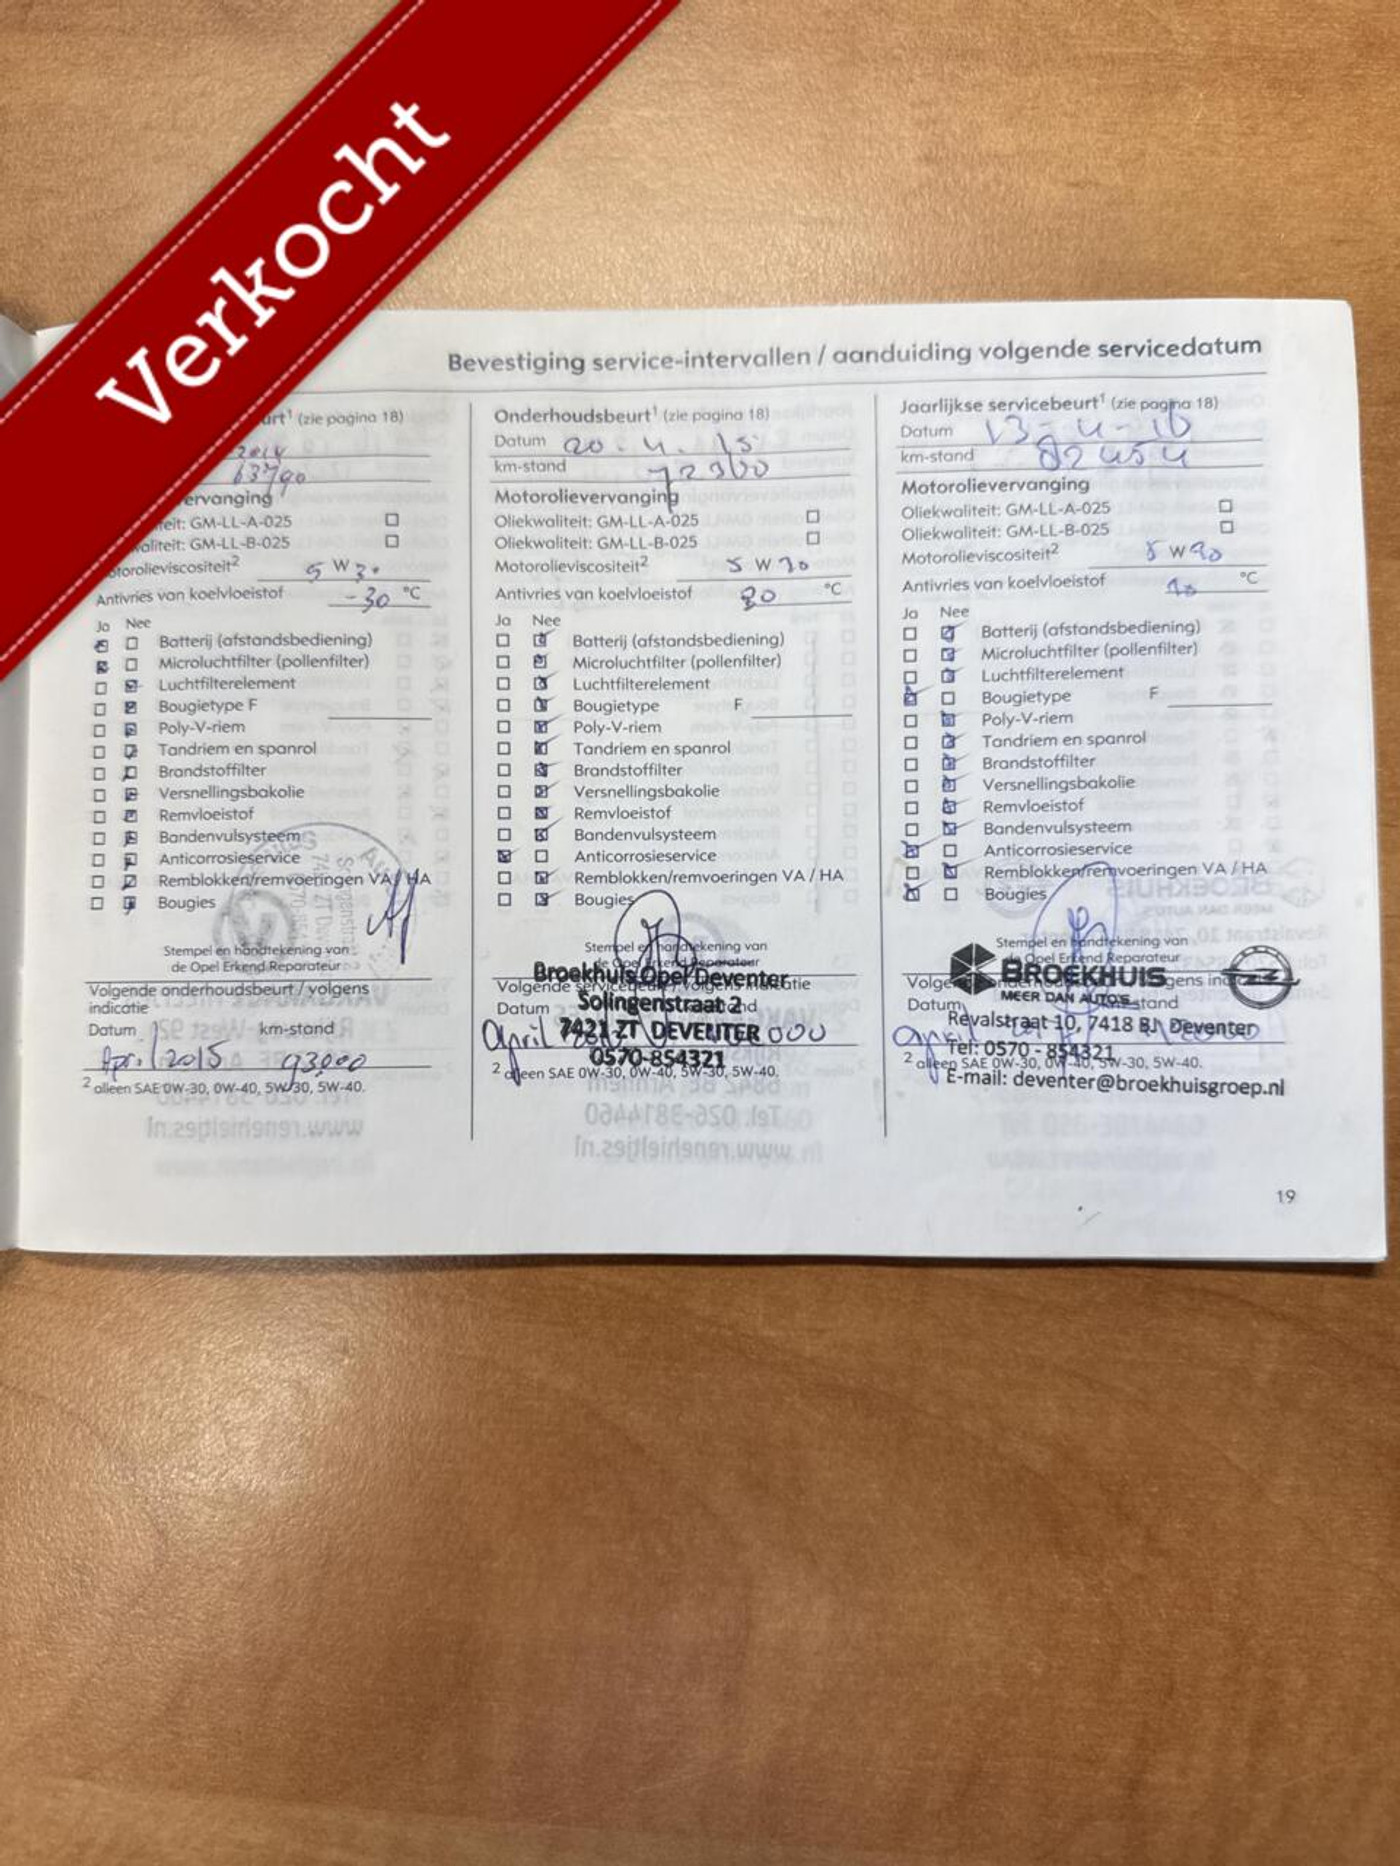 Verkocht
Bevestiging service-intervallen / aanduiding volgende servicedatum
urt¹ (zie pagina 18)
2014
63790
ervanging
teit: GM-LL-A-025
waliteit: GM-LL-B-025
otorolieviscositeit² 5 W 30
Antivries van koelvloeistof -30 °C
Ja Nee
Batterij (afstandsbediening)
Microluchtfilter (pollenfilter)
Luchtfilterelement
Bougietype F
Poly-V-riem
Tandriem en spanrol
Brandstoffilter
Versnellingsbakolie
Remvloeistof
Bandenvulsysteem
Anticorrosieservice
Remblokken/remvoeringen VA / HA
Bougies
Stempel en handtekening van
de Opel Erkend Reparateur
Volgende onderhoudsbeurt / volgens
indicatie
Datum km-stand
April 2015 93000
² alleen SAE 0W-30, 0W-40, 5W-30, 5W-40.
Onderhoudsbeurt¹ (zie pagina 18)
Datum 20.4.15
km-stand 72300
Motorolievervanging
Oliekwaliteit: GM-LL-A-025
Oliekwaliteit: GM-LL-B-025
Motorolieviscositeit² 5 W 30
Antivries van koelvloeistof 30 °C
Ja Nee
Batterij (afstandsbediening)
Microluchtfilter (pollenfilter)
Luchtfilterelement
Bougietype F
Poly-V-riem
Tandriem en spanrol
Brandstoffilter
Versnellingsbakolie
Remvloeistof
Bandenvulsysteem
Anticorrosieservice
Remblokken/remvoeringen VA / HA
Bougies
Stempel en handtekening van
de Opel Erkend Reparateur
Broekhuis Opel Deventer
Volgende servicebeurt / volgens indicatie
Solingenstraat 2
Datum
7421 ZT DEVENTER
april 000
0570-854321
² alleen SAE 0W-30, 0W-40, 5W-30, 5W-40.
Jaarlijkse servicebeurt¹ (zie pagina 18)
Datum 13-4-16
km-stand 82454
Motorolievervanging
Oliekwaliteit: GM-LL-A-025
Oliekwaliteit: GM-LL-B-025
Motorolieviscositeit² 5 W
Antivries van koelvloeistof °C
Ja Nee
Batterij (afstandsbediening)
Microluchtfilter (pollenfilter)
Luchtfilterelement
Bougietype F
Poly-V-riem
Tandriem en spanrol
Brandstoffilter
Versnellingsbakolie
Remvloeistof
Bandenvulsysteem
Anticorrosieservice
Remblokken/remvoeringen VA / HA
Bougies
Stempel en handtekening van
de Opel Erkend Reparateur
BROEKHUIS
MEER DAN AUTO'S
Datum km-stand
Revalstraat 10, 7418 BJ Deventer
Tel: 0570 - 854321
² alleen SAE 0W-30, 0W-40, 5W-30, 5W-40.
E-mail: deventer@broekhuisgroep.nl
19